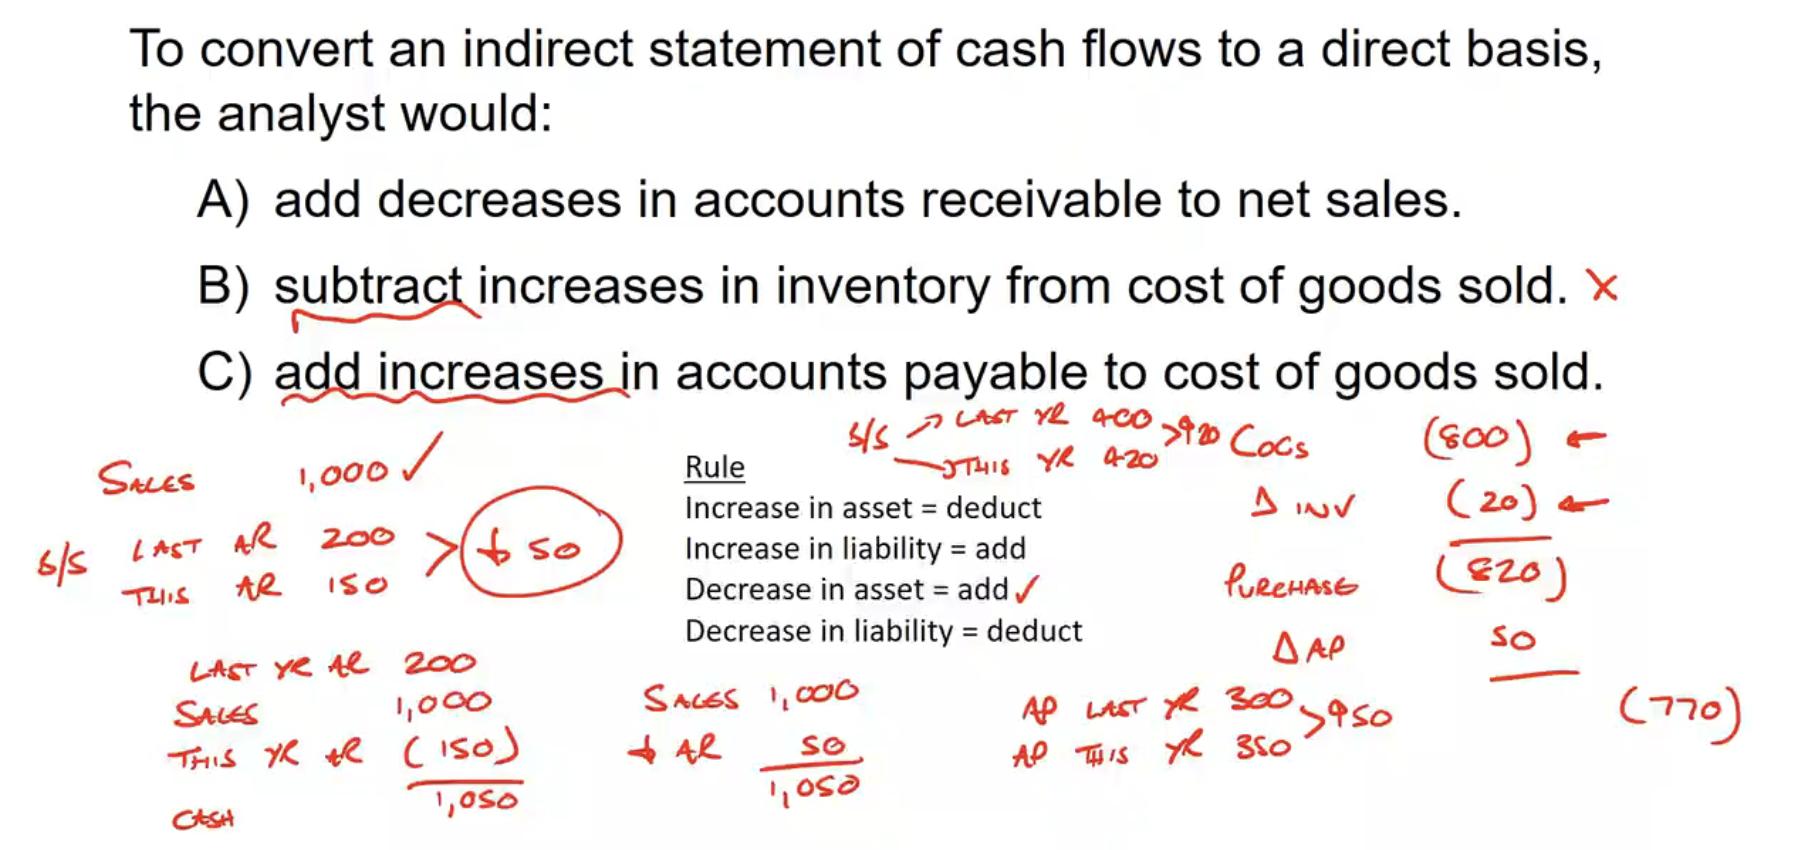 To convert an indirect statement of cash flows to a direct basis,
the analyst would:
A) add decreases in accounts receivable to net sales.
B) subtract increases in inventory from cost of goods sold. ×
C) add increases in accounts payable to cost of goods sold.
SALES 1,000 ✓
S/S LAST AR 200 > ↓ 50
THIS AR 150
LAST YR AR 200
SALES 1,000
THIS YR AR (150)
1,050
CASH
Rule
Increase in asset = deduct
Increase in liability = add
Decrease in asset = add ✓
Decrease in liability = deduct
SALES 1,000
↓ AR 50
1,050
S/S → LAST YR 400 > ↑20
→ THIS YR 420
COGS (800) ←
Δ INV (20) ←
PURCHASE (820)
Δ AP 50
(770)
AP LAST YR 300 > ↑50
AP THIS YR 350